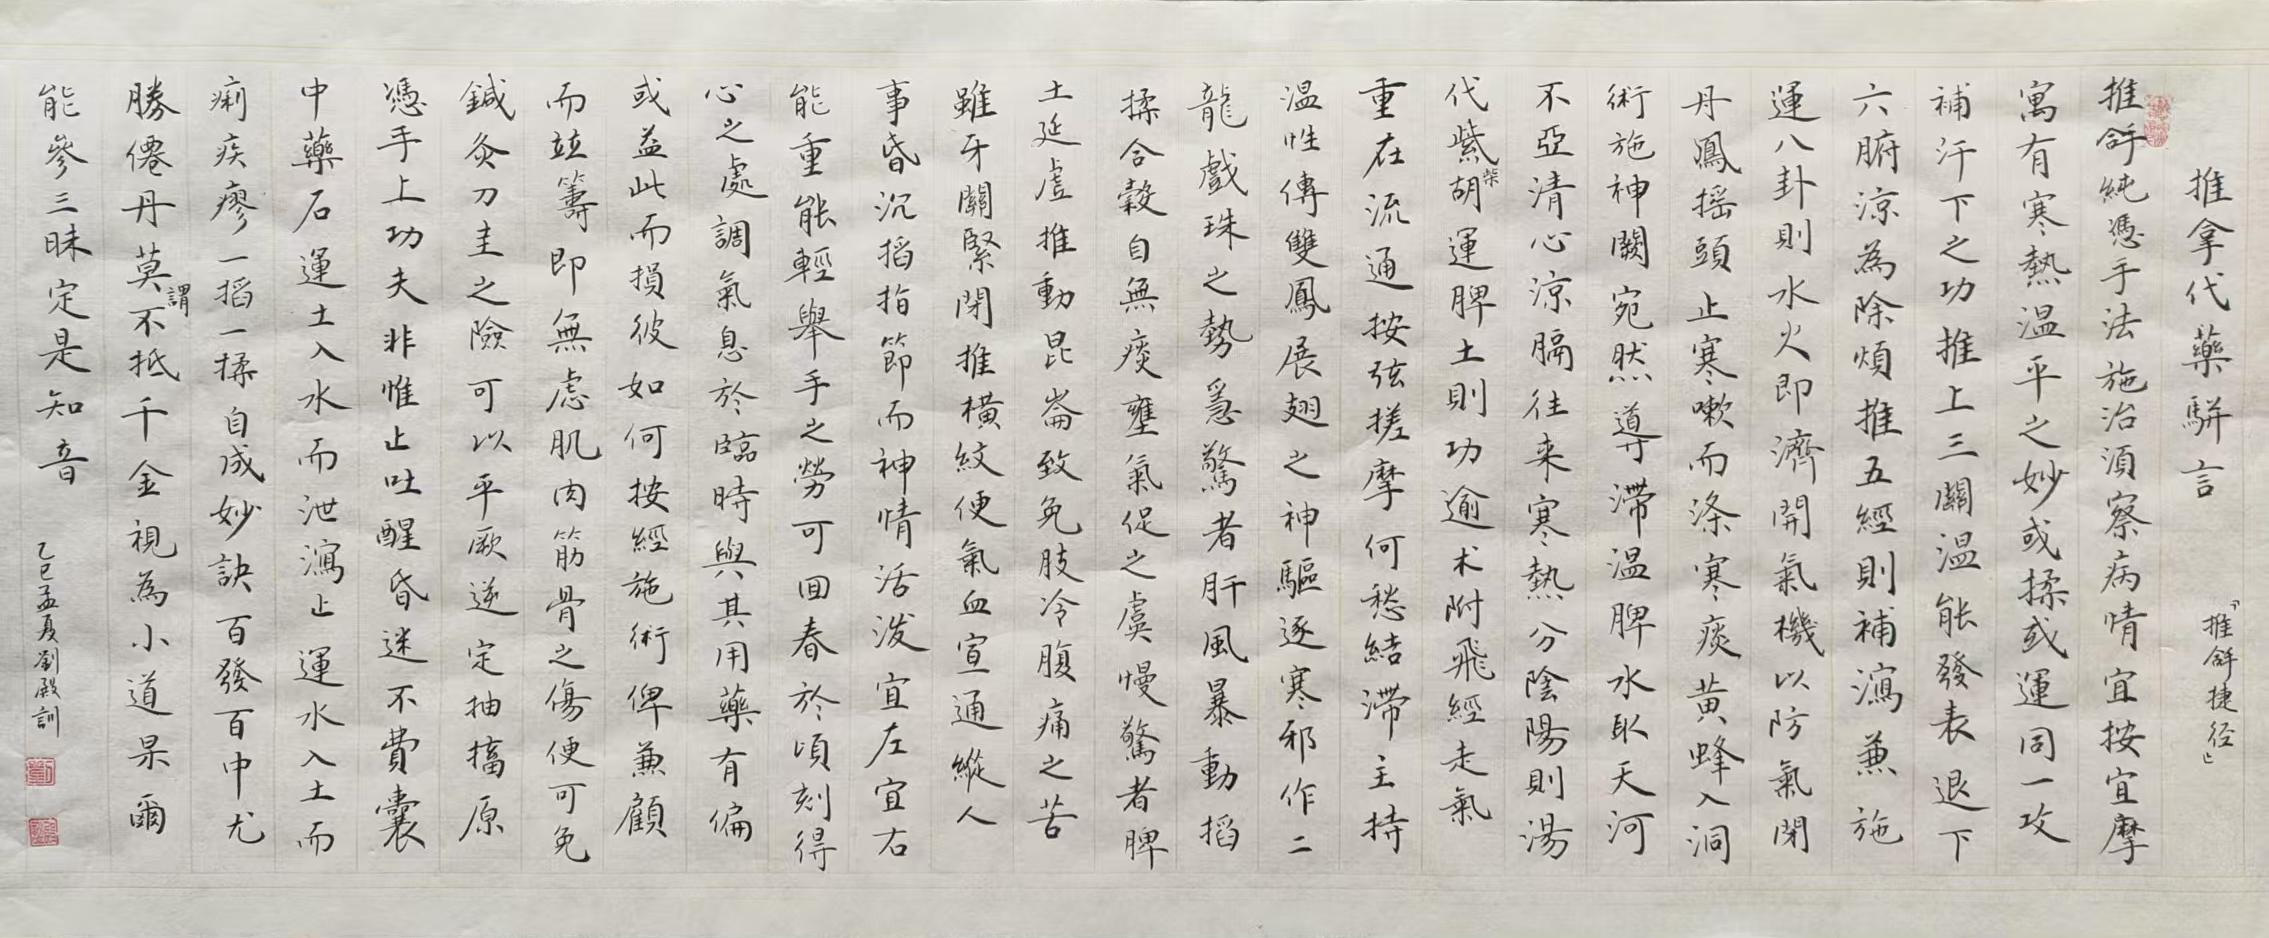 推拿代藥駢言
「推拏捷径」
推拏純憑手法施治須察病情宜按宜摩
寓有寒熱温平之妙或揉或運同一攻
補汗下之功推上三關温能發表退下
六腑涼為除煩推五經則補瀉兼施
運八卦則水火即濟開氣機以防氣閉
丹鳳摇頭止寒嗽而涤寒痰黄蜂入洞
術施神闕宛然導滯温脾水取天河
不亞清心涼膈往来寒熱分陰陽則湯
代紫胡運脾土則功逾术附飛經走氣
柴
重在流通按弦搓摩何愁結滯主持
温性傳雙鳳展翅之神驅逐寒邪作二
龍戲珠之勢急驚者肝風暴動搯
揉合穀自無痰壅氣促之虞慢驚者脾
土延虚推動昆崙致免肢冷腹痛之苦
雖牙關緊閉推横紋便氣血宣通縱人
事昏沉搯指節而神情活潑宜左宜右
能重能輕舉手之勞可回春於頃刻得
心之處調氣息於臨時與其用藥有偏
或益此而損彼如何按經施術俾兼顧
而並籌即無虑肌肉筋骨之傷便可免
鍼灸刀圭之險可以平厥逆定抽搐原
憑手上功夫非惟止吐醒昏迷不費囊
中藥石運土入水而泄瀉止運水入土而
痢疾瘳一搯一揉自成妙訣百發百中尤
勝僊丹莫不抵千金視為小道果爾
謂
能參三昧定是知音
乙巳孟夏劉殿訓